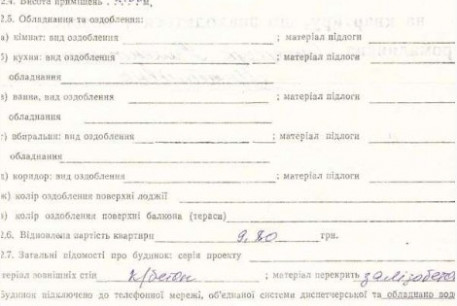 2.4. Висота приміщень
2.5. Обладнання та оздоблення:
а) кімнат: вид оздоблення ; матеріал підлоги
б) кухня: вид оздоблення ; матеріал підлоги
обладнання
в) ванна, вид оздоблення ; матеріал підлоги
обладнання
г) вбиральня: вид оздоблення ; матеріал підлоги
обладнання
д) коридор: вид оздоблення ; матеріал підлоги
ж) колір оздоблення поверхні лоджії
з) колір оздоблення поверхні балкона (тераси)
2.6. Відновлена вартість квартири 9,80 грн.
2.7. Загальні відомості про будинок: серія проекту
теріал зовнішніх стін к/бетон ; матеріал перекрить залізобето
Будинок підключено до телефонної мережі, об'єднаної системи диспетчерської та обладнано вод